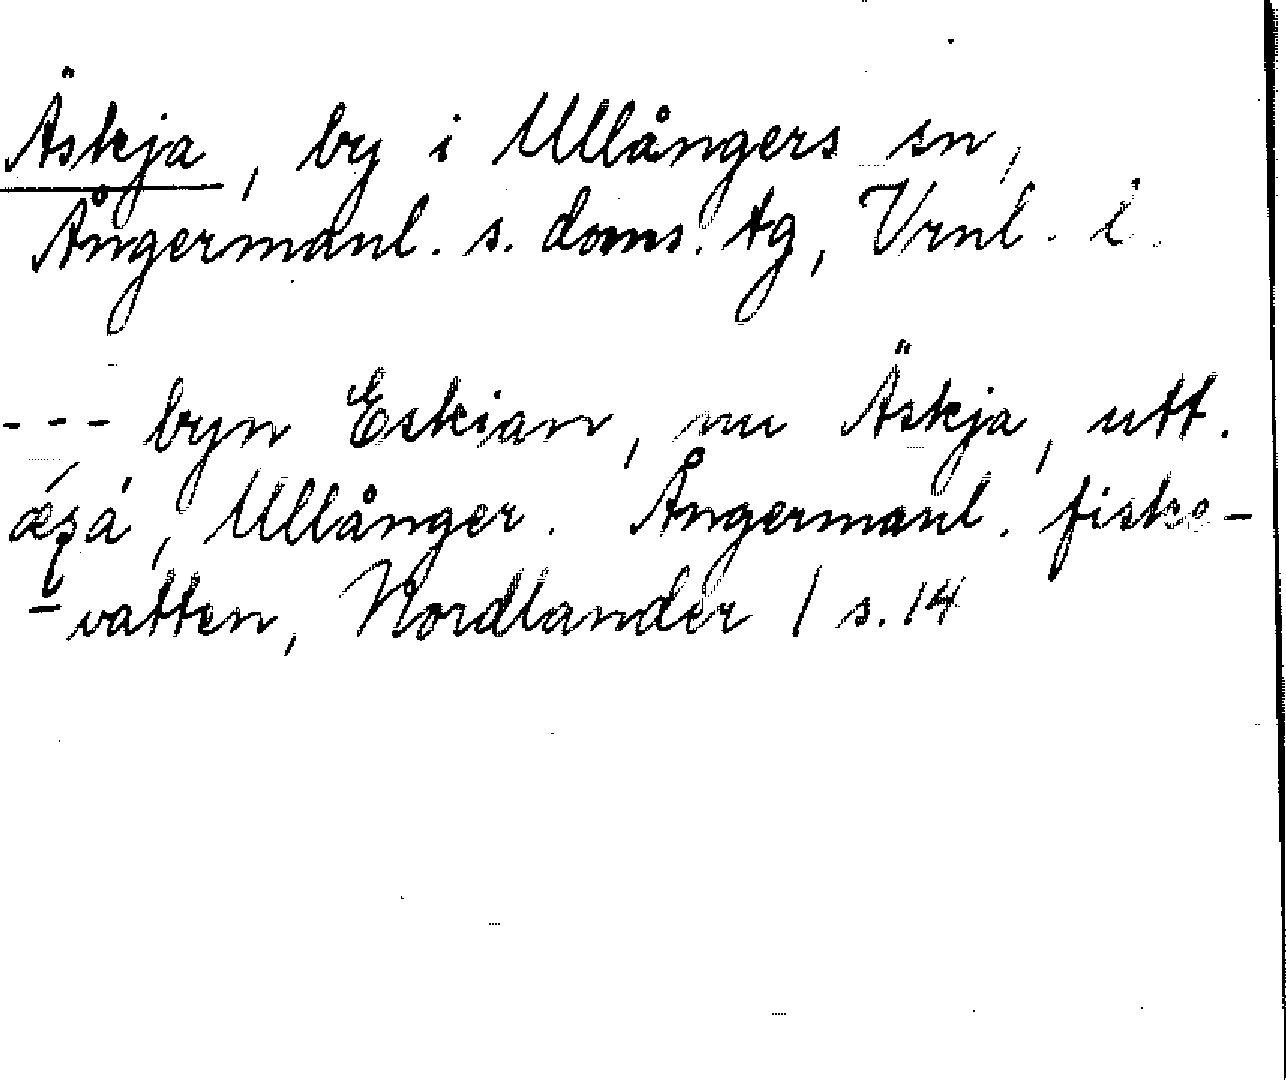 Äskja, by i Ullångers sn,
Ångermanl. s. doms. tg, Vrnl. l.
--- byn Eskian, nu Äskja, utt.
Ullånger. Ångermanl. fiske-
-vatten, Nordlander / s. 14